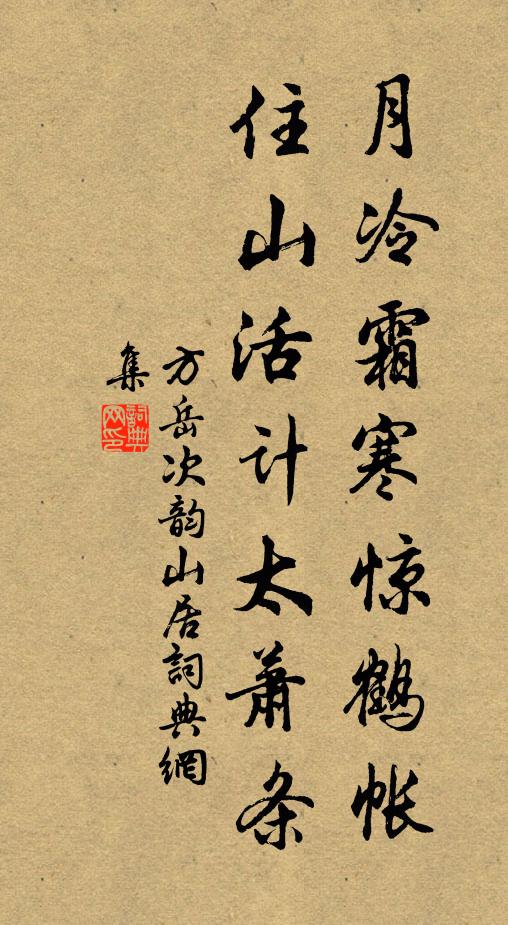 月冷霜寒惊鹤帐
住山活计太萧条
方岳次韵山居詞典網
集
詞典网印